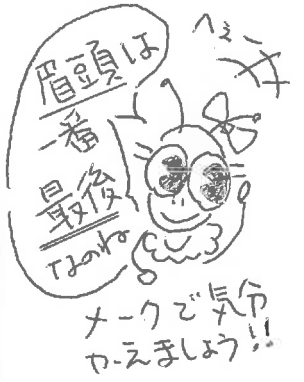 眉頭は
一番
最後
なのね
へぇー
メークで気分
かえましょう!!